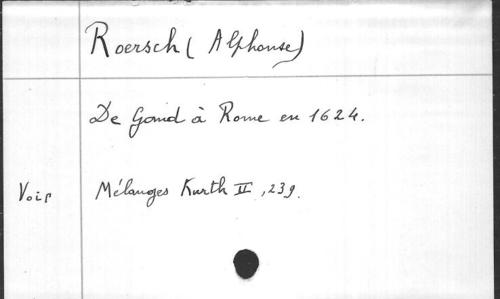 Roersch (Alphonse)
De Gand à Rome en 1624.
Voir Mélanges Kurth II, 239.